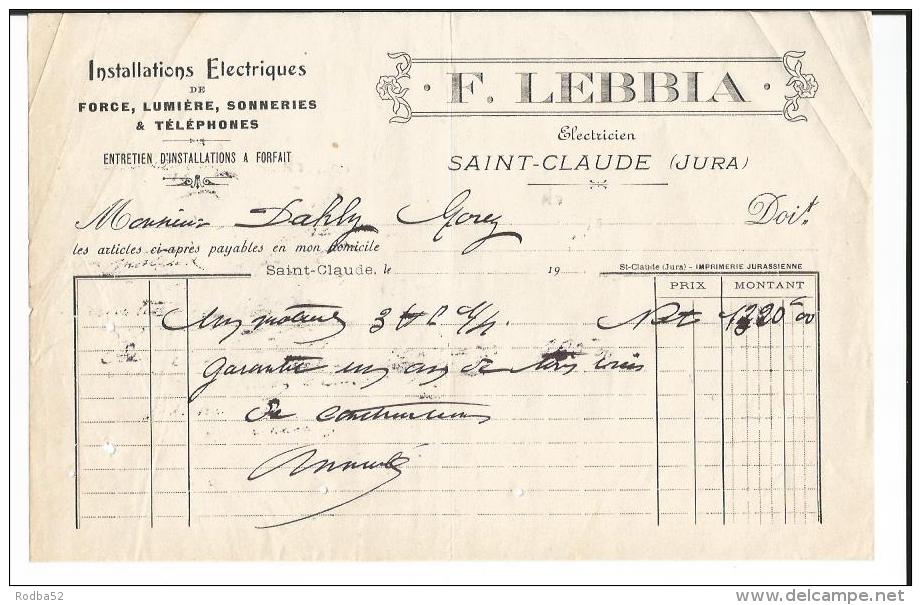 Installations Electriques
DE
FORCE, LUMIÈRE, SONNERIES
& TÉLÉPHONES
ENTRETIEN D'INSTALLATIONS A FORFAIT
· F. LEBBIA ·
Electricien
SAINT-CLAUDE (JURA)
Monsieur Dahly Morez Doit
les articles ci-après payables en mon domicile
Saint-Claude, le 19
St-Claude (Jura) - IMPRIMERIE JURASSIENNE
PRIX MONTANT
Un moteur 3 Net
Garantie un an de tous vices
de construction
Rodba52
delcampe.net